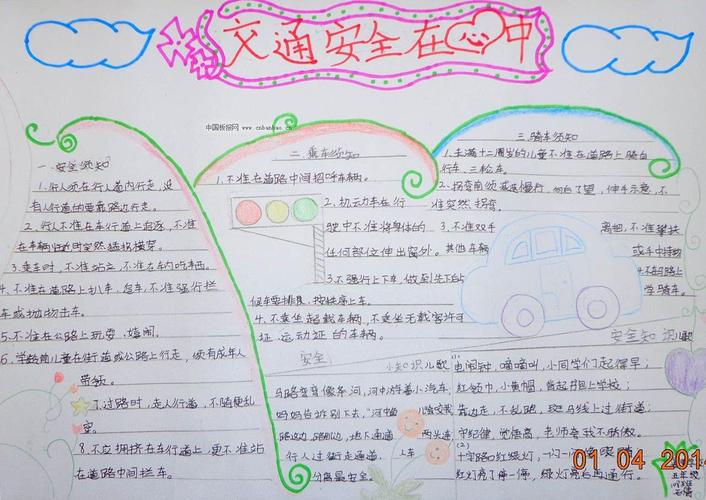 交通安全在心中
中国板报网 www.cnbanbao.cn
一.安全须知
1.行人须在行人道内行走,没
有人行道的要靠路边行走。
2.行人不准在车行道上追逐,不准
在车辆临近时突然横穿。
3.乘车时,不准站立,不准在车内吃东西。
4.不准在道路上扒车,追车,不准强行拦
车或抛物击车。
5.不准在公路上玩耍、嬉闹。
6.学龄前儿童在街道或公路上行走,须有成年人
带领。
7.过路时,走人行道,不随便乱
窜。
8.不应拥挤在车行道上,更不准站
在道路中间拦车。
二.乘车须知
1.不准在道路中间招呼车辆。
2.机动车在行
驶中不准将身体的
任何部位伸出窗外。
3.不强行上下车,做到先下后上
候车要排队,按秩序上车。
4.不乘坐超载车辆,不乘坐无载客许可
证、运动证的车辆。
三.骑车须知
1.未满十二周岁的儿童不准在道路上骑自
行车、三轮车。
2.拐弯前须减速慢行,向后了望,伸手示意,不
准突然拐弯。
3.不准双手离把,不准攀扶
其他车辆或手中持物
4.不在路上
学骑车。
安全小知识儿歌
马路弯弯像条河,河中游着小汽车,
妈妈告诉别下去,
路边边,
行人过街走通道,人车
分离最安全。
安全知识儿歌
电闹钟,嘀嘀叫,小同学们起得早;
红领巾,小黄帽,背起书包上学校;
靠边走,不乱跑,斑马线上过街道;
守纪律,觉悟高,老师夸我不骄傲。
(2)
十字路口红绿灯,一闪一闪亮眼睛
红灯亮了停一停,绿灯亮后再通行。
01 04 201
五年级